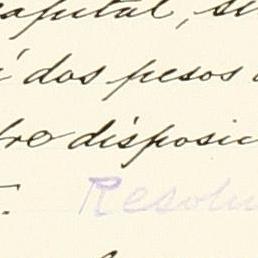 capital, su
á dos pesos
bre disposic
Resolu